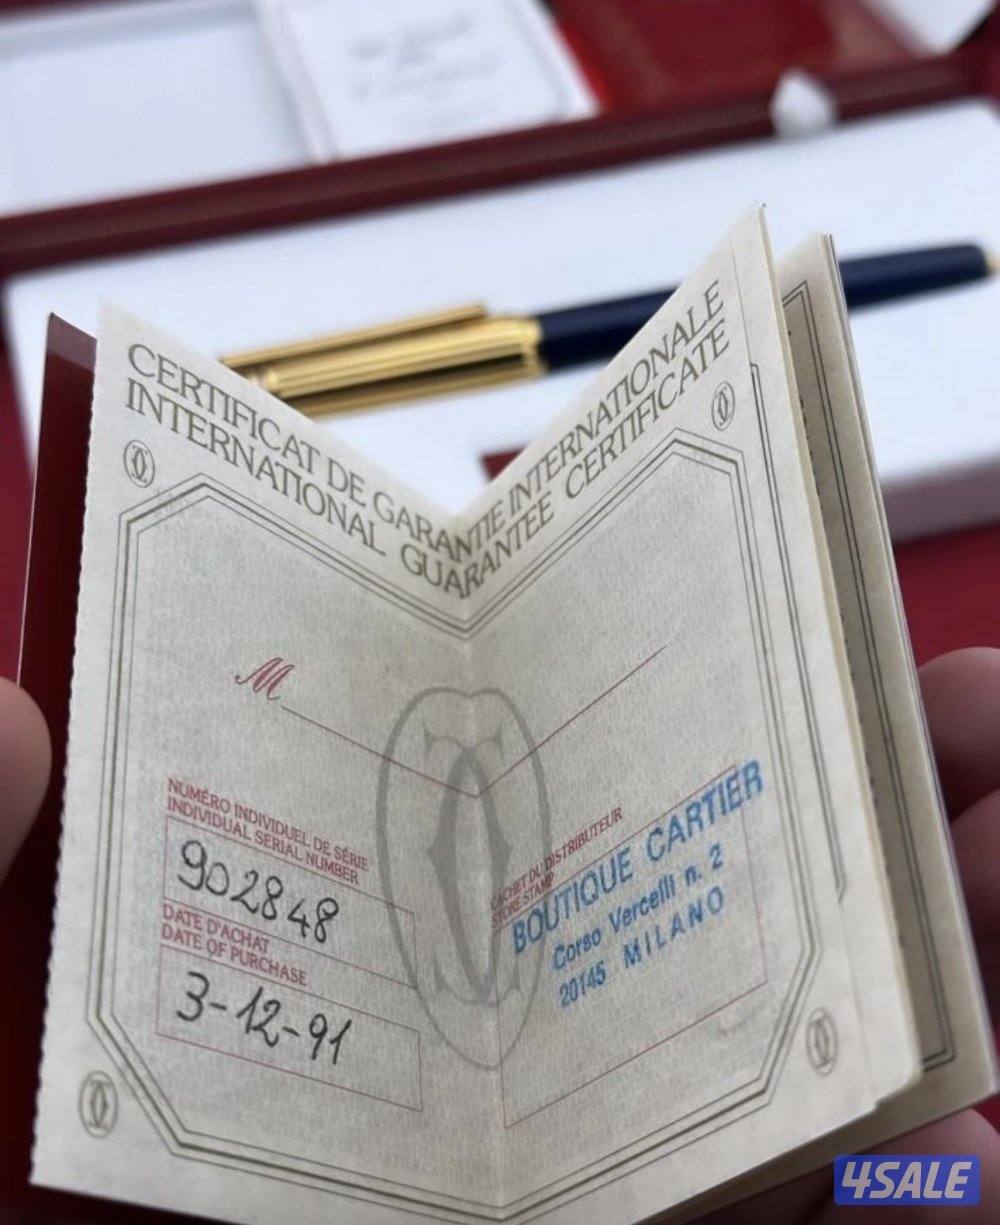 CERTIFICAT DE GARANTIE INTERNATIONALE
INTERNATIONAL GUARANTEE CERTIFICATE
M
NUMÉRO INDIVIDUEL DE SÉRIE
INDIVIDUAL SERIAL NUMBER
902848
DATE D'ACHAT
DATE OF PURCHASE
3-12-91
CACHET DU DISTRIBUTEUR
STORE STAMP
BOUTIQUE CARTIER
Corso Vercelli n. 2
20145 MILANO
4SALE